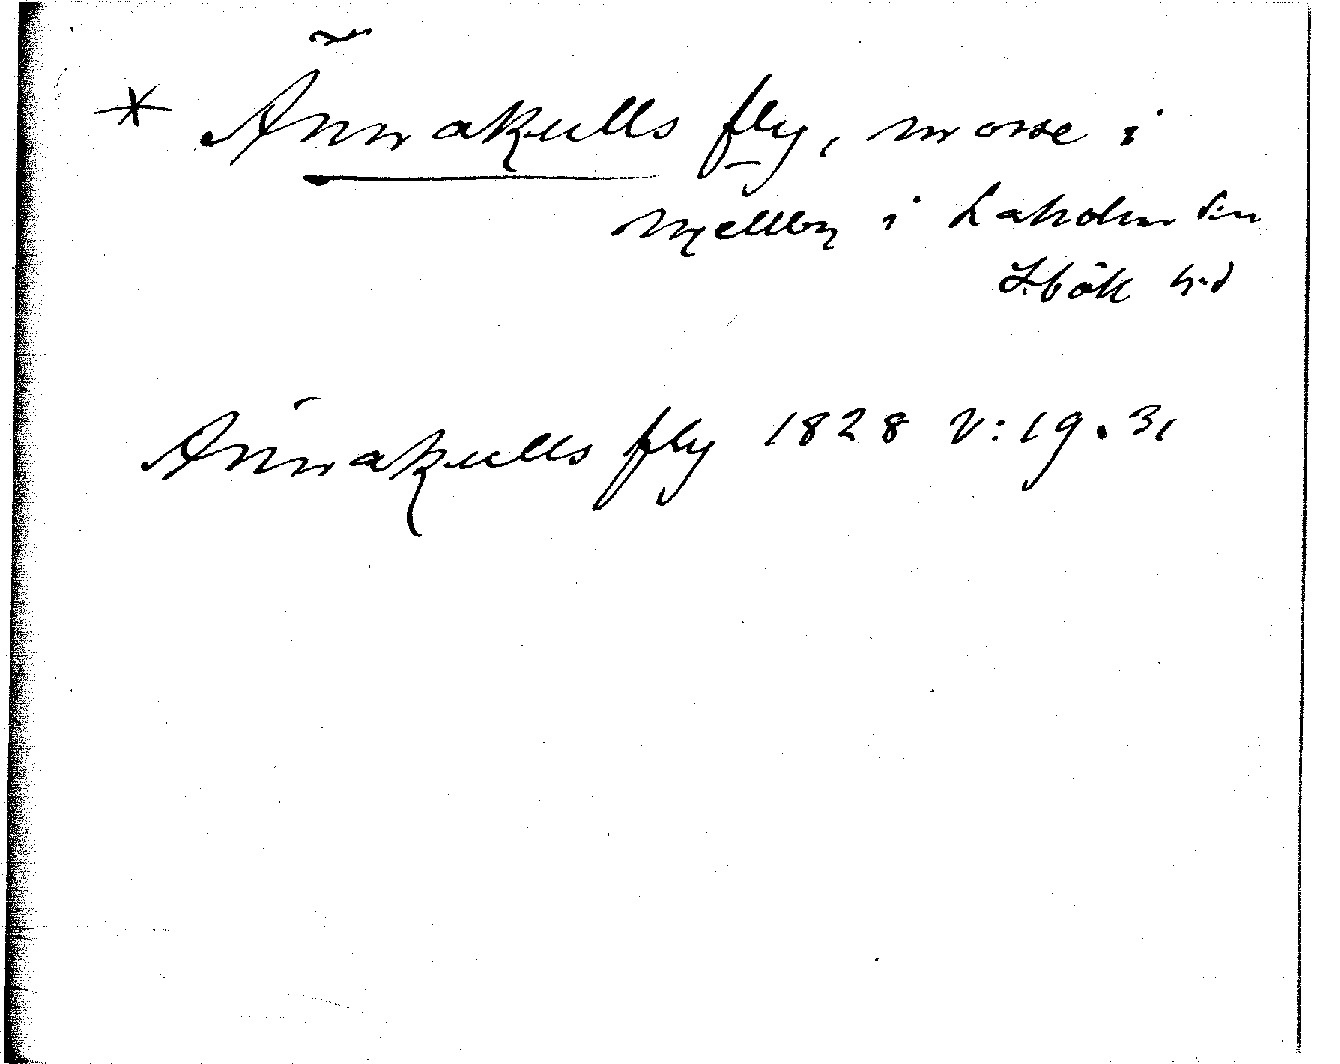 * Ännakulls fly, mosse i
Mellby i Laholm sn
Hök hd
Ännakulls fly 1828 V: 19. 31